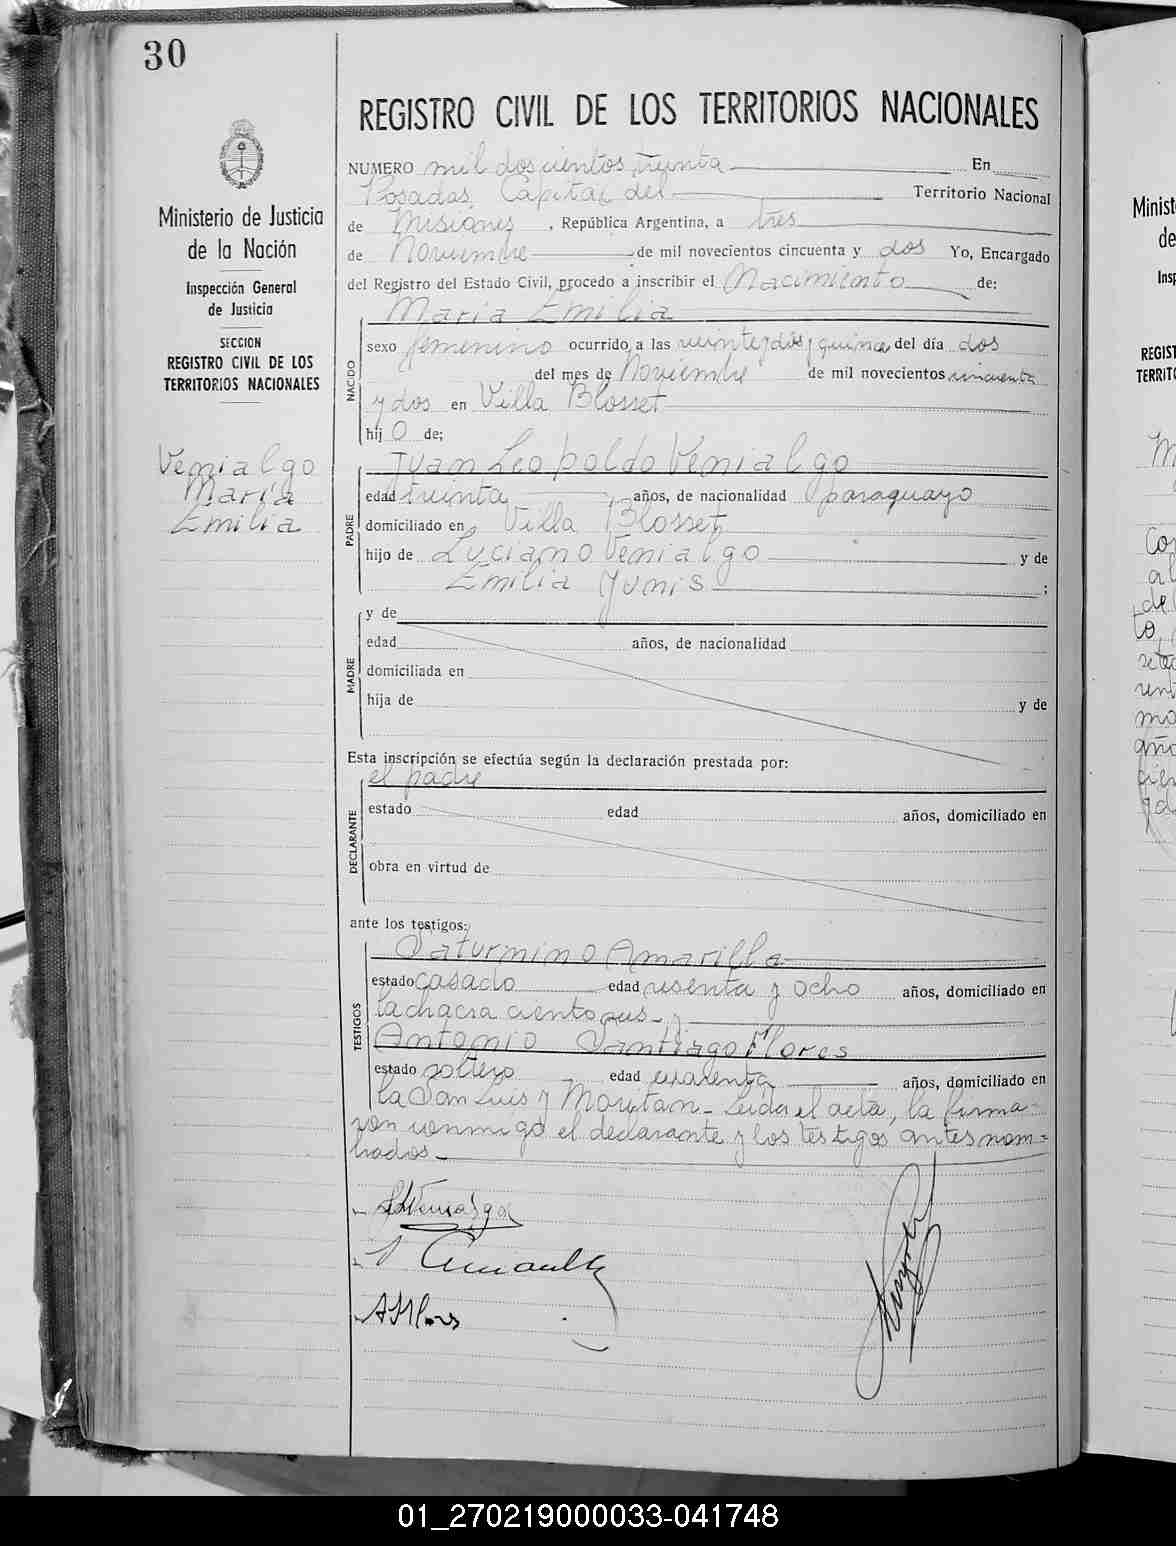 30
Ministerio de Justicia
de la Nación
Inspección General
de Justicia
SECCION
REGISTRO CIVIL DE LOS
TERRITORIOS NACIONALES
Venialgo
María
Emilia
REGISTRO CIVIL DE LOS TERRITORIOS NACIONALES
NUMERO mil doscientos treinta En
Posadas, Capital del Territorio Nacional
de Misiones, República Argentina, a tres
de Noviembre de mil novecientos cincuenta y dos Yo, Encargado
del Registro del Estado Civil, procedo a inscribir el Nacimiento de:
María Emilia
NACIDO
sexo femenino ocurrido a las veinte y dos y quince del día dos
del mes de Noviembre de mil novecientos cincuenta
y dos en Villa Blosset
hij o de;
Juan Leopoldo Venialgo
PADRE
edad treinta años, de nacionalidad paraguayo
domiciliado en Villa Blosset
hijo de Luciano Venialgo y de
Emilia Yunis ;
y de
MADRE
edad años, de nacionalidad
domiciliada en
hija de y de
Esta inscripción se efectúa según la declaración prestada por:
el padre
DECLARANTE
estado edad años, domiciliado en
obra en virtud de
ante los testigos:
Saturnino Amarilla
TESTIGOS
estado casado edad sesenta y ocho años, domiciliado en
la chacra ciento seis y
Antonio Santiago Flores
estado soltero edad cuarenta años, domiciliado en
la San Luis y Moritan - Leida el acta, la firma-
ron conmigo el declarante y los testigos antes nom-
brados.
A S Flores
Minist
de
Insp
REGIST
TERRITO
01_270219000033-041748